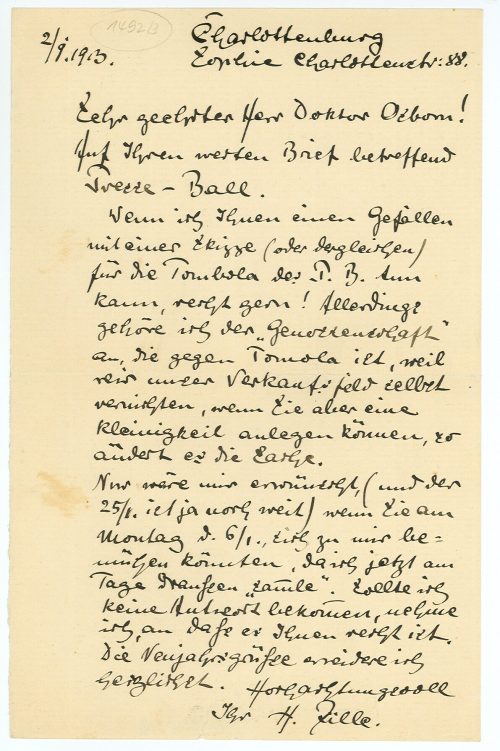 14923
2/I. 1913.
Charlottenburg
Sophie Charlottenstr: 88.
Sehr geehrter Herr Doktor Osborn!
Auf Ihren werten Brief betreffend
Presse - Ball.
Wenn ich Ihnen einen Gefallen
mit einer Skizze (oder dergleichen)
für die Tombola des P. B. tun
kann, recht gern! Allerdings
gehöre ich der „Genossenschaft“
an, die gegen Tomola ist, weil
wir unser Verkaufsfeld selbst
vernichten, wenn Sie aber eine
Kleinigkeit anlegen können, so
ändert es die Sache.
Nur wäre mir erwünscht, (und der
25/I. ist ja noch weit) wenn Sie am
Montag d. 6/I., sich zu mir be=
mühen könnten, da ich jetzt am
Tage draussen „samle“. Sollte ich
keine Antwort bekomen, nehme
ich, an dass es Ihnen recht ist.
Die Neujahrsgrüsse erwidere ich
herzlichst. Hochachtungsvoll
Ihr H. Zille.